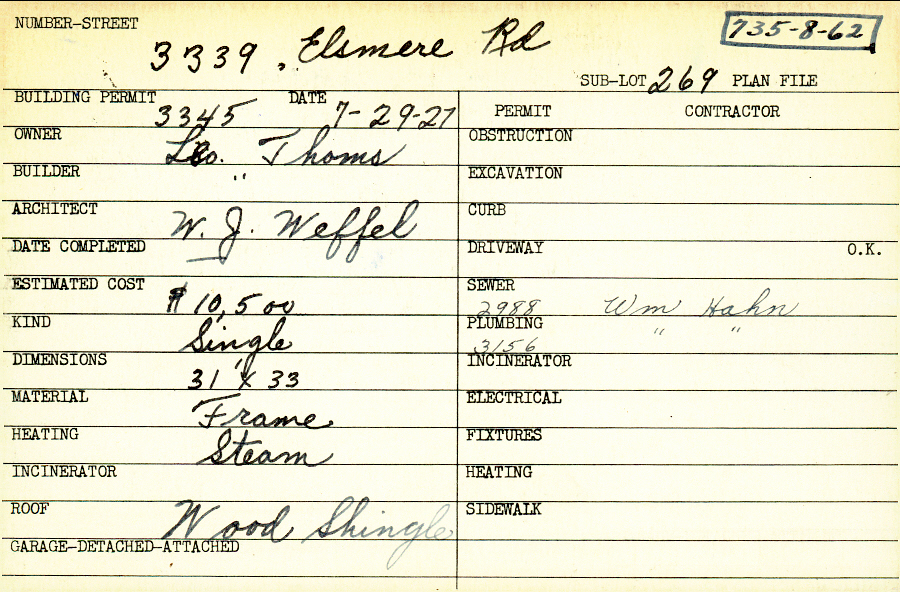 NUMBER-STREET 3339 Elsmere Rd 735-8-62
SUB-LOT 269 PLAN FILE
BUILDING PERMIT 3345 DATE 7-29-27
PERMIT CONTRACTOR
OWNER Thoms
OBSTRUCTION
BUILDER "
EXCAVATION
ARCHITECT W. J. Weffel
CURB
DATE COMPLETED
DRIVEWAY O.K.
ESTIMATED COST $10,500
SEWER 2988 Wm Hahn
KIND Single
PLUMBING 3156 " "
DIMENSIONS 31 x 33
INCINERATOR
MATERIAL Frame
ELECTRICAL
HEATING Steam
FIXTURES
INCINERATOR
HEATING
ROOF Wood Shingle
SIDEWALK
GARAGE-DETACHED-ATTACHED